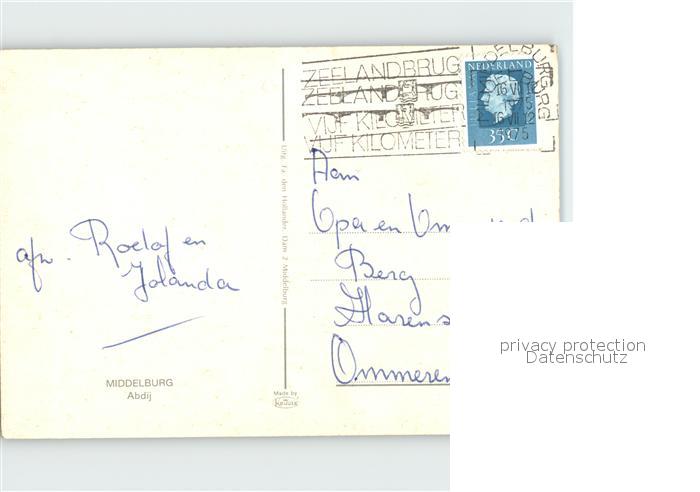 ZEELANDBRUG
ZEELANDBRUG
VIJF KILOMETER
VIJF KILOMETER
MIDDELBURG
NEDERLAND
16 VII 12
16 VII 12
75
35c
Aan
Opa en Oma
Berg
Ommeren
afz. Roelof en
Jolanda
Uitg. Fa. den Hollander, Dam 2 Middelburg
MIDDELBURG
Abdij
Made by
KRUGER
privacy protection
Datenschutz